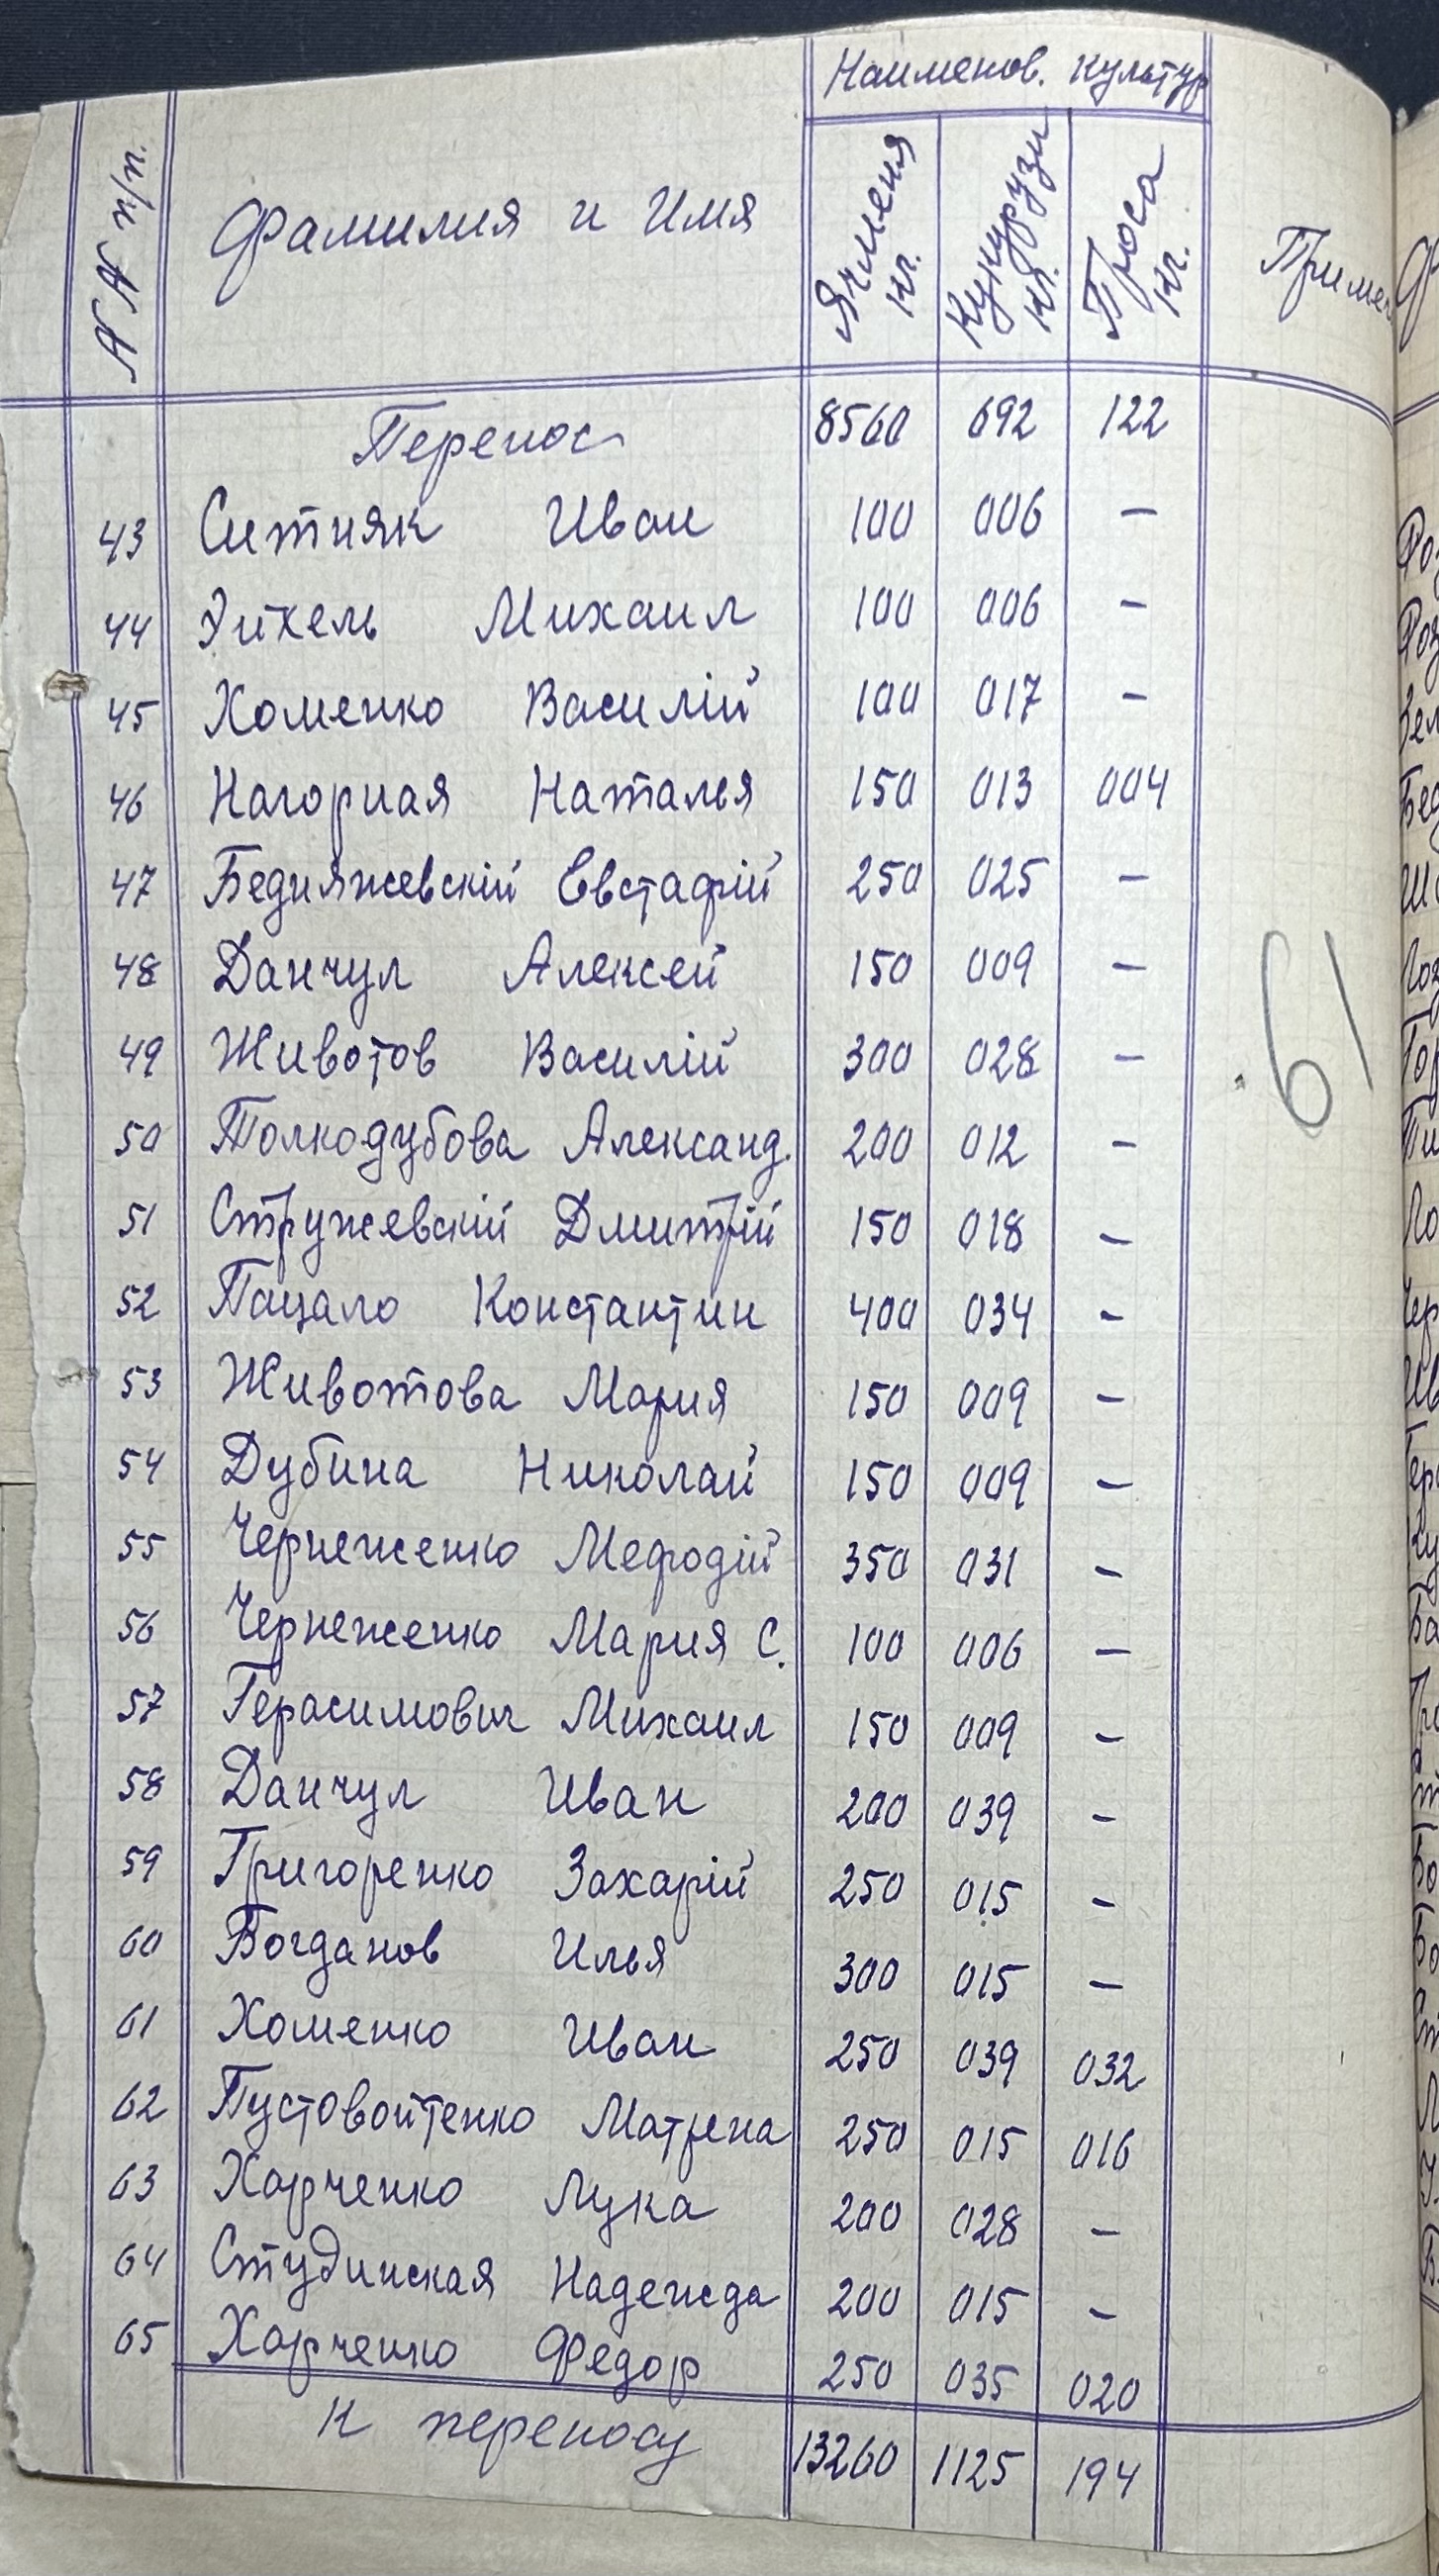 Наименов. культур
№№ п/п. Фамилия и Имя Ячменя кг. Кукурузи кг. Проса кг. Примеч
Перенос 8560 692 122
43 Ситняк Иван 100 006 —
44 Эйхель Михаил 100 006 —
45 Хоменко Василій 100 017 —
46 Нагорная Наталья 150 013 004
47 Бедняжевскій Евстафій 250 025 —
48 Данчул Алексей 150 009 —
49 Животов Василій 300 028 —
50 Толкодубова Александ. 200 012 —
51 Стружевскій Дмитрій 150 018 —
52 Пацало Константин 400 034 —
53 Животова Мария 150 009 —
54 Дубина Николай 150 009 —
55 Чернеженко Мефодій 350 031 —
56 Чернеженко Мария С. 100 006 —
57 Герасимович Михаил 150 009 —
58 Данчул Иван 200 039 —
59 Григоренко Захарій 250 015 —
60 Богданов Илья 300 015 —
61 Хоменко Иван 250 039 032
62 Пустовойтенко Матрена 250 015 016
63 Харченко Лука 200 028 —
64 Студинская Надежда 200 015 —
65 Харченко Федор 250 035 020
К переносу 13260 1125 194